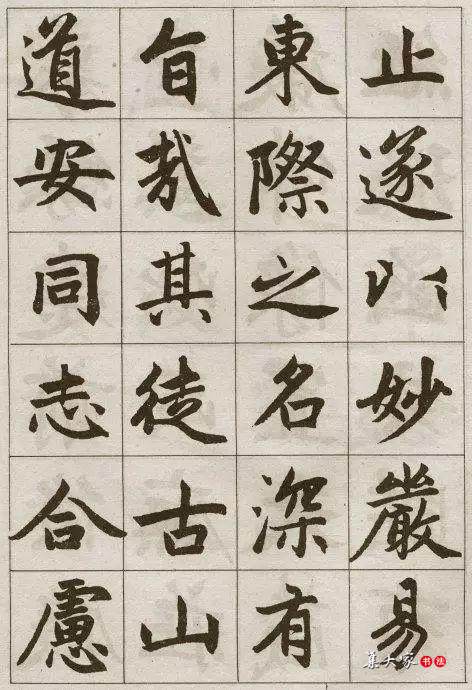 止遂以妙嚴易
東際之名深有
旨哉其徒古山
道安同志合慮
集大家 书法